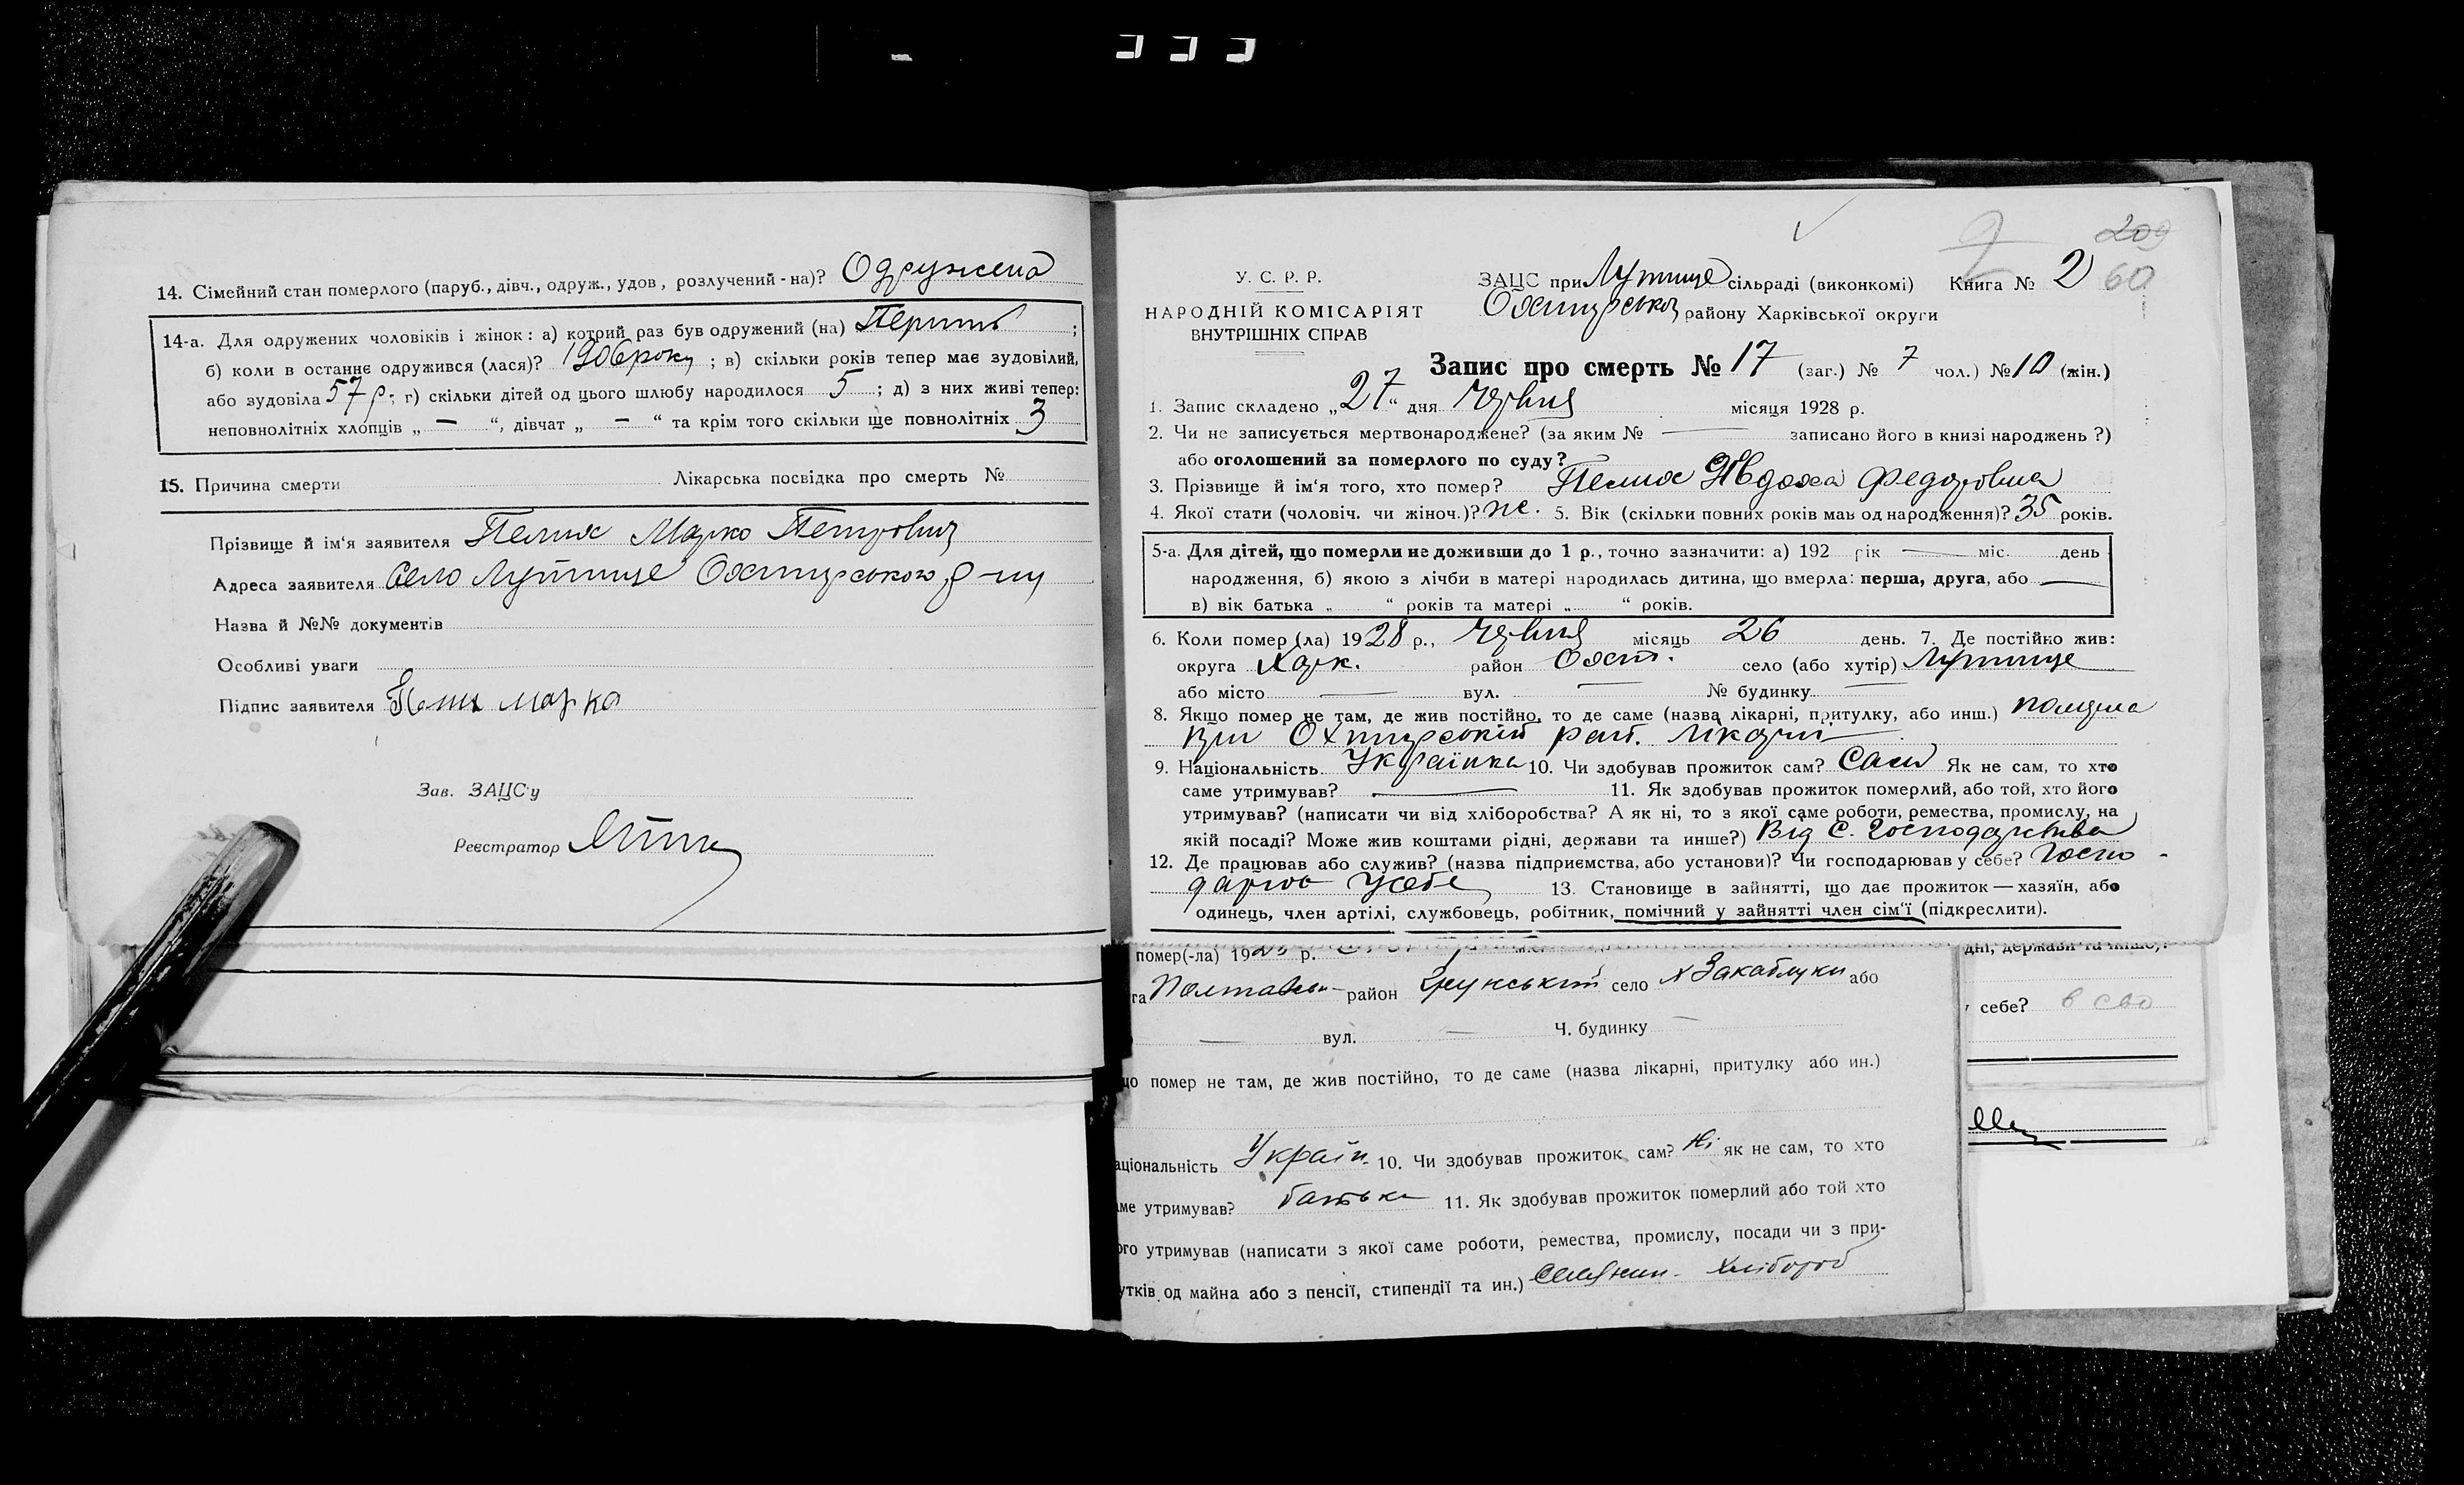 14. Сімейний стан померлого (паруб., дівч., одруж., удов, розлучений-на)? Одружена
14-а. Для одружених чоловіків і жінок: а) котрий раз був одружений (на) Перший;
б) коли в останнє одружився (лася)? 1906 року; в) скільки років тепер має зудовілий,
або зудовіла 57 р; г) скільки дітей од цього шлюбу народилося 5; д) з них живі тепер:
неповнолітніх хлопців „ — “, дівчат „ — “ та крім того скільки ще повнолітніх 3
15. Причина смерти Лікарська посвідка про смерть №
Прізвище й ім‘я заявителя Пелих Марко Петрович
Адреса заявителя Село Лутище Охтирського р-ну
Назва й №№ документів
Особливі уваги
Підпис заявителя марко
Зав. ЗАЦС‘у
Реєстратор
209
У. С. Р. Р.
ЗАЦС при Лутище сільраді (виконкомі) Книга № 2 60
НАРОДНІЙ КОМІСАРІЯТ
ВНУТРІШНІХ СПРАВ
Охтирської району Харківської округи
Запис про смерть № 17 (заг.) № 7 чол.) № 10 (жін.)
1. Запис складено „27“ дня Червня місяця 1928 р.
2. Чи не записується мертвонароджене? (за яким № — записано його в книзі народжень ?)
або оголошений за померлого по суду?
3. Прізвище й ім‘я того, хто помер? Пелих Явдоха Федоровна
4. Якої стати (чоловіч. чи жіноч.)? ж. 5. Вік (скільки повних років мав од народження)? 35 років.
5-а. Для дітей, що померли не доживши до 1 р., точно зазначити: а) 192 рік — міс. день
народження, б) якою з лічби в матері народилась дитина, що вмерла: перша, друга, або —
в) вік батька „ “ років та матері „ “ років.
6. Коли помер (ла) 1928 р., Червня місяць 26 день. 7. Де постійно жив:
округа Харк. район Охт. село (або хутір) Лутище
або місто — вул. — № будинку —
8. Якщо помер не там, де жив постійно, то де саме (назва лікарні, притулку, або инш.)
Охтирській рай. лікарні
9. Національність Українка 10. Чи здобував прожиток сам? Сам Як не сам, то хто
саме утримував? — 11. Як здобував прожиток померлий, або той, хто його
утримував? (написати чи від хліборобства? А як ні, то з якої саме роботи, ремества, промислу, на
якій посаді? Може жив коштами рідні, держави та инше?) Від С. Господарства
12. Де працював або служив? (назва підприємства, або установи)? Чи господарював у себе? Госпо-
усебе 13. Становище в зайнятті, що дає прожиток — хазяїн, або
одинець, член артілі, службовець, робітник, помічний у зайнятті член сім‘ї (підкреслити).
помер(-ла) 192 р.
га район село х Закаблуки або
— вул. — Ч. будинку —
що помер не там, де жив постійно, то де саме (назва лікарні, притулку або ин.)
аціональність Україн. 10. Чи здобував прожиток сам? Ні як не сам, то хто
аме утримував? батько 11. Як здобував прожиток померлий або той хто
ого утримував (написати з якої саме роботи, ремества, промислу, посади чи з при-
утків од майна або з пенсії, стипендії та ин.) Селянин хлібороб
дні, держави та инше)?
у себе? в сво